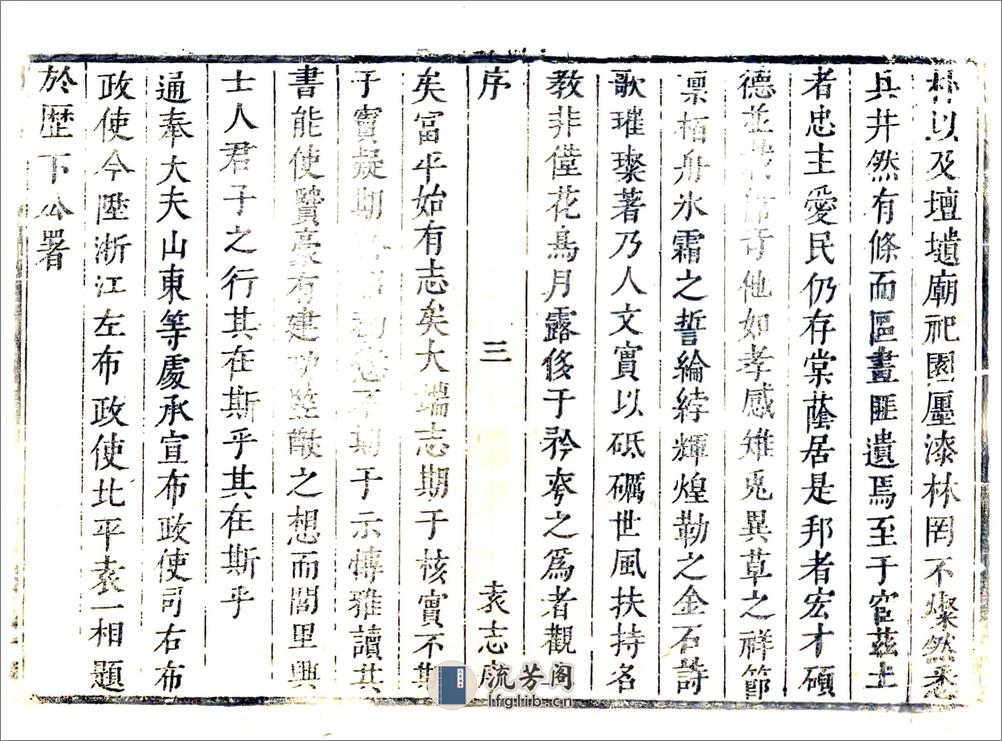 以及壇壝廟祀園廛漆林罔不燦然悉
具井然有條而區畫匪遺焉至于官茲土
者忠主愛民仍存棠蔭居是邦者宏才碩
德並 奇他如孝感雉兎異草之祥節
凛栢舟氷霜之誓綸綍輝煌勒之金石詩
歌璀璨著乃人文實以砥礪世風扶持名
教非僅花鳥月露侈于矜夸之爲者觀
序
三
袁志序
矣富平始有志矣大端志期于核實不期
于 疑期 期于示傳雅讀其
書能使賢豪有建 之想而閭里興
士人君子之行其在斯乎其在斯乎
通奉大夫山東等處承宣布政使司右布
政使今陞浙江左布政使北平袁一相題
於歴下公署
流芳阁
lfglib.cn